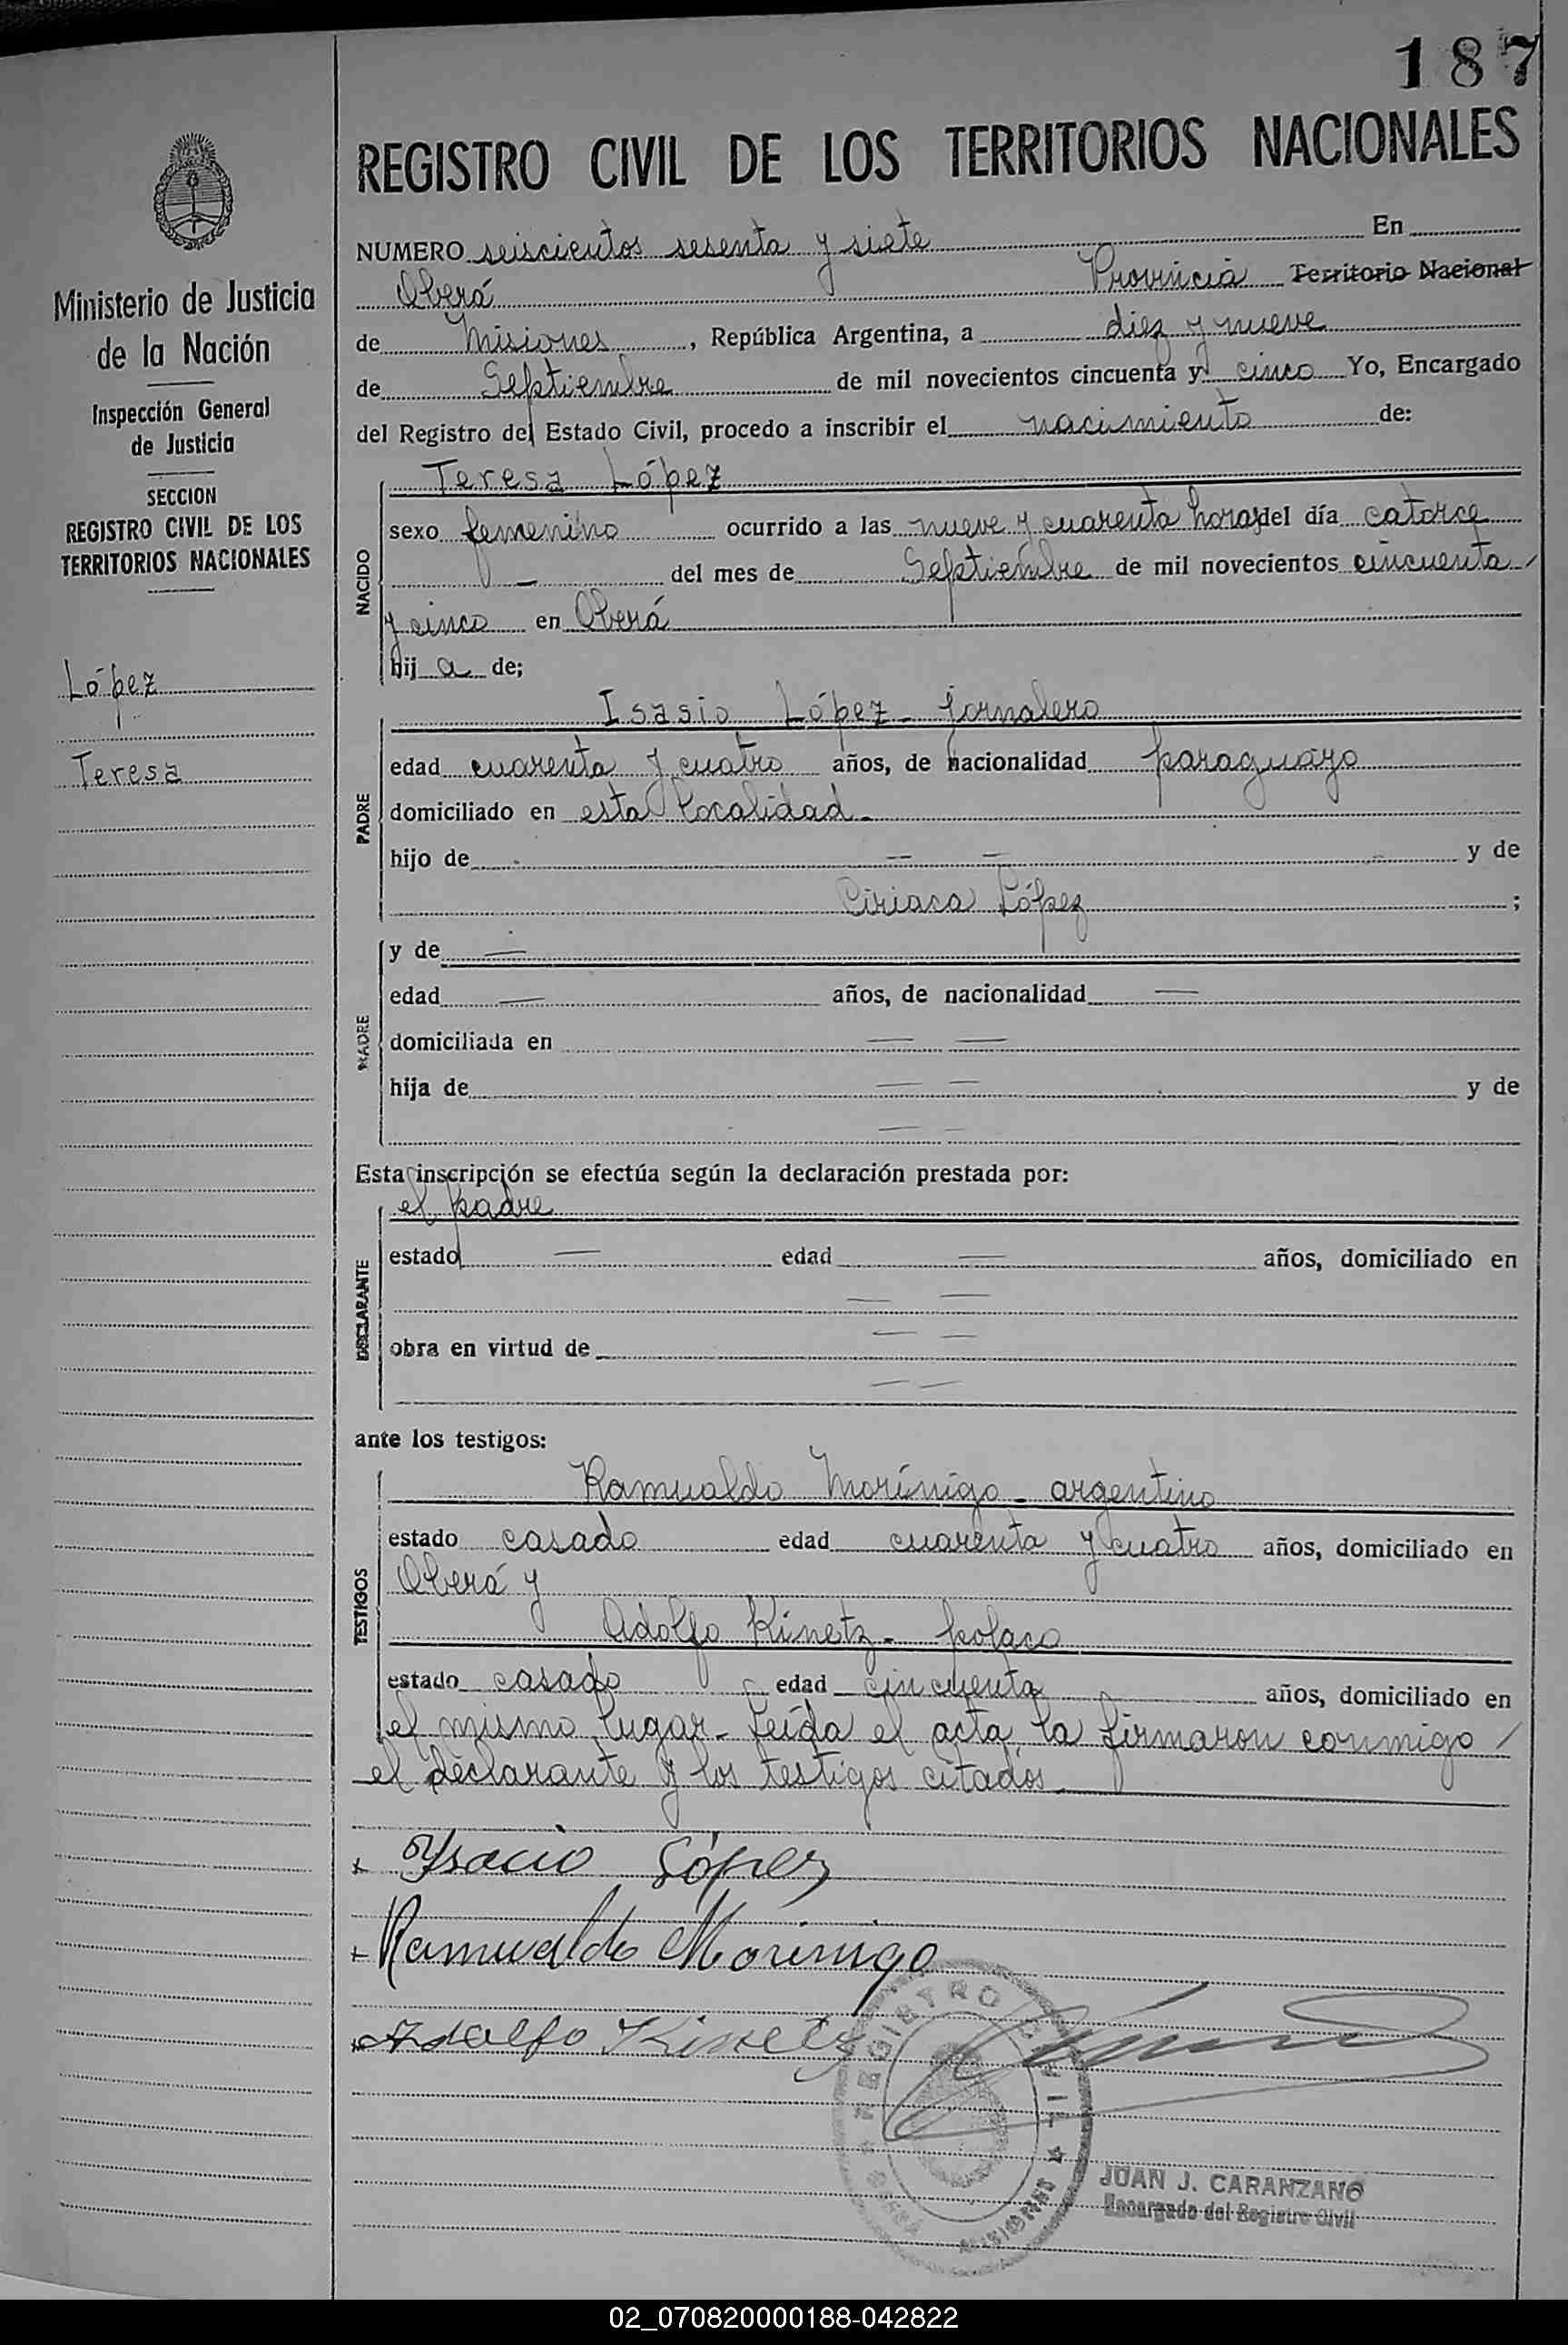 187
REGISTRO CIVIL DE LOS TERRITORIOS NACIONALES
Ministerio de Justicia
de la Nación
Inspección General
de Justicia
SECCION
REGISTRO CIVIL DE LOS
TERRITORIOS NACIONALES
López
Teresa
NUMERO seiscientos sesenta y siete En
Oberá Provincia Territorio Nacional
de Misiones, República Argentina, a diez y nueve
de Septiembre de mil novecientos cincuenta y cinco Yo, Encargado
del Registro del Estado Civil, procedo a inscribir el nacimiento de:
NACIDO
Teresa López
sexo femenino ocurrido a las nueve y cuarenta horas del día catorce
— del mes de Septiembre de mil novecientos cincuenta /
y cinco en Oberá
hij a de;
PADRE
Isasio López - jornalero
edad cuarenta y cuatro años, de nacionalidad paraguayo
domiciliado en esta localidad -
hijo de — — y de
Ciriaca López ;
MADRE
y de —
edad — años, de nacionalidad —
domiciliada en — —
hija de — — y de
— —
Esta inscripción se efectúa según la declaración prestada por:
DECLARANTE
el padre
estado — edad — años, domiciliado en
— —
obra en virtud de — —
— —
ante los testigos:
TESTIGOS
Ramualdo Morínigo - argentino
estado casado edad cuarenta y cuatro años, domiciliado en
Oberá y
Adolfo Kinetz - polaco
estado casado edad cincuenta años, domiciliado en
el mismo lugar - Leída el acta, la firmaron conmigo /
el declarante y los testigos citados.
x Ysacio López
x Ramualdo Morinigo
x Adolfo Kinetz
REGISTRO CIVIL
OBERA MISIONES
JUAN J. CARANZANO
Encargado del Registro Civil
02_070820000188-042822